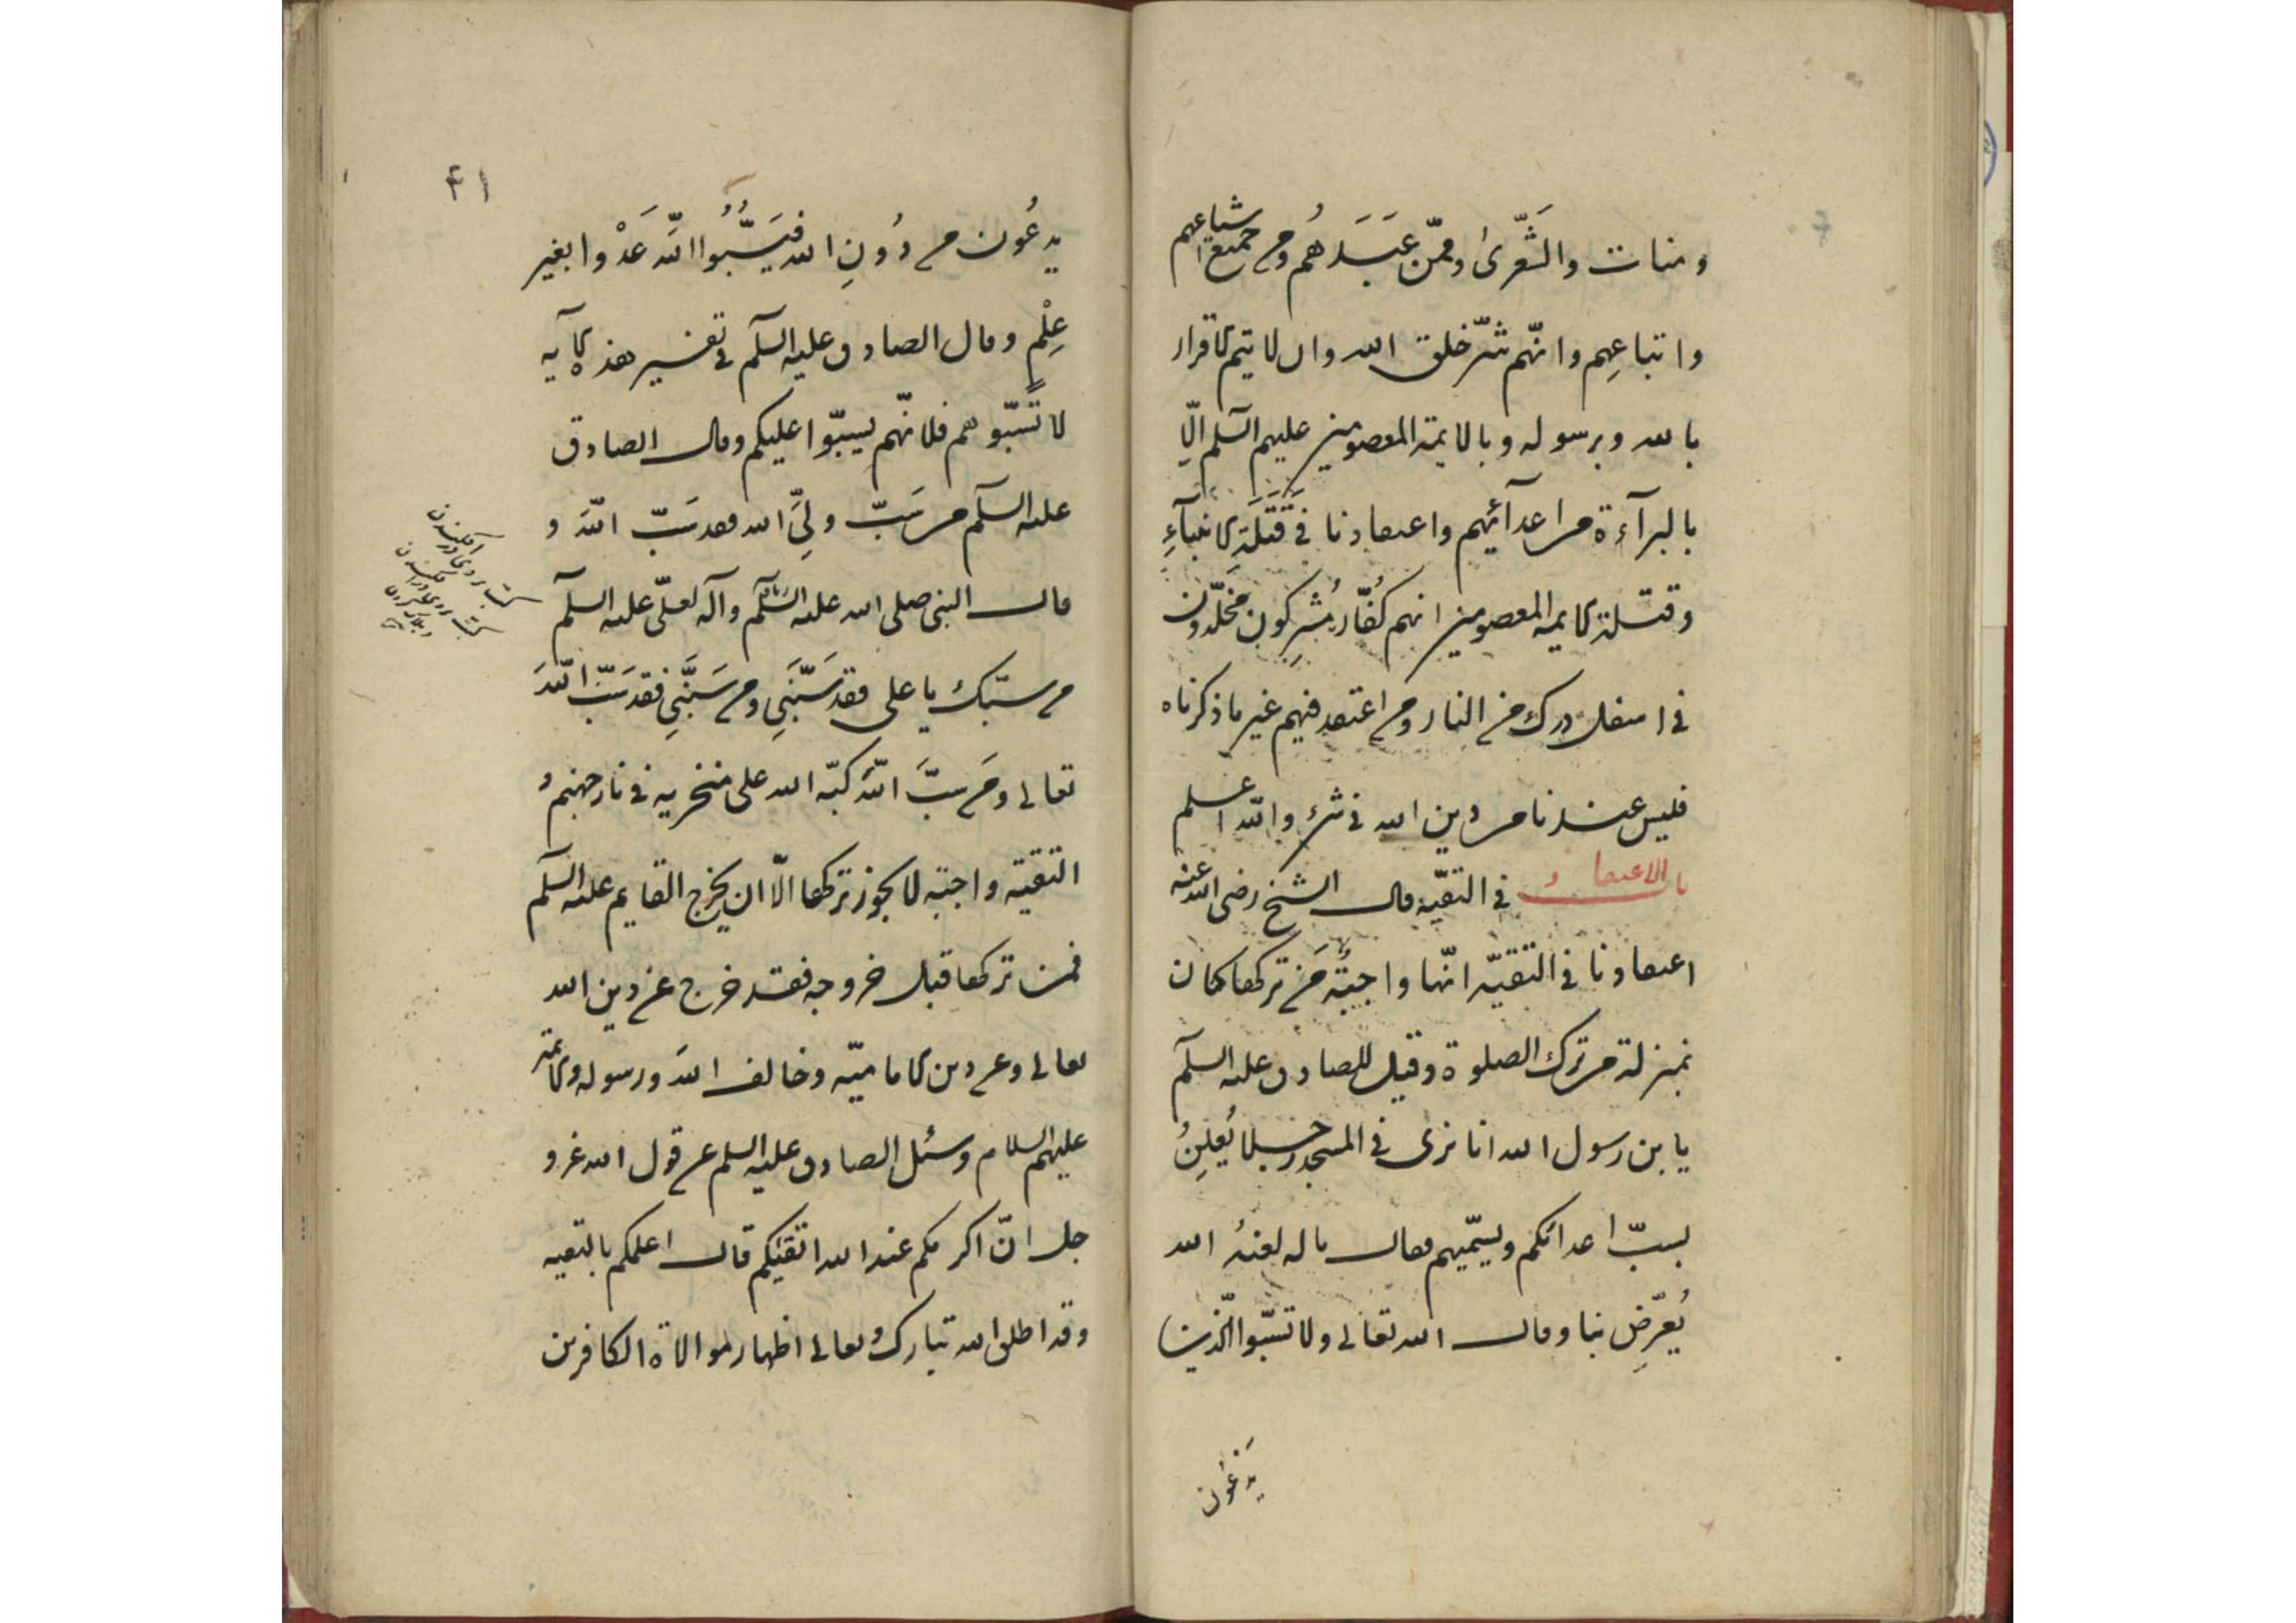 ومنات والشَّعرىٰ وممّن عَبَدَهُم ومن جميع اشياعهم
واتباعِهِم وانّهم شرّ خلق الله وان لا يتم الاقرار
بالله وبرسوله وبالايمة المعصومين عليهم السلم الّا
بالبرآءة من اعدآئهم واعتقادنا في قَتَلَةِ الانبيآءِ
وقتلة الايمه المعصومين انهم كُفّار مُشرِكون مخلّدون
في اسفل درك من النار ومن اعتقد فيهم غير ما ذكرناه
فليس عندنا من دين الله في شئ والله اعلم
باب الاعتقاد في التقيّه قال الشيخ رضى الله عنه
اعتقادنا في التقيّه انّها واجبةٌ مَن تركها كان
بمنزلة من ترك الصلوة وقيل للصادق عليه السلم
يابن رسول الله انا نرى في المسجد رجلا يُعلِنُ
بسبّ اعدائكم ويسمّيهم فقال ما له لعنهُ الله
يُعرّضِ بنا وقال الله تعالى ولا تسبّوا الّذين
يَدعُون
۴۱
يدعُون من دُونِ الله فيَسُبُّوا اللهَ عَدْوا بغير
عِلْمٍ وقال الصادق عليه السلم في تفسير هذه الآيه
لا تَسبّوهم فلانّهم يسبّوا عليكم وقال الصادق
عليه السلم من سَبّ ولِيَّ الله فقد سَبّ اللهَ و
قال النبي صلى الله عليه السلم وآله لعلىّ عليه السلم
من سبّك يا على فقد سَبَّنِي ومن سَبَّنِي فقد سَبّ اللهَ
تعالى ومَن سبَّ اللهَ كبّه الله على منخريه في نار جهنم و
التقيّه واجبة لا يجوز تركها الّا ان يخرج القايم عليه السلم
فمن تركها قبل خروجه فقد خرج عن دين الله
تعالى وعن دين الاماميّه وخالف اللهَ ورسوله والائمة
عليهم السلام وسئل الصادق عليه السلم عن قول الله عز و
جل انّ اكرمكم عند الله اتقيكم قال اعلمكم بالتقيه
وقد اطلق الله تبارك وتعالى اظهار موالاة الكافرين